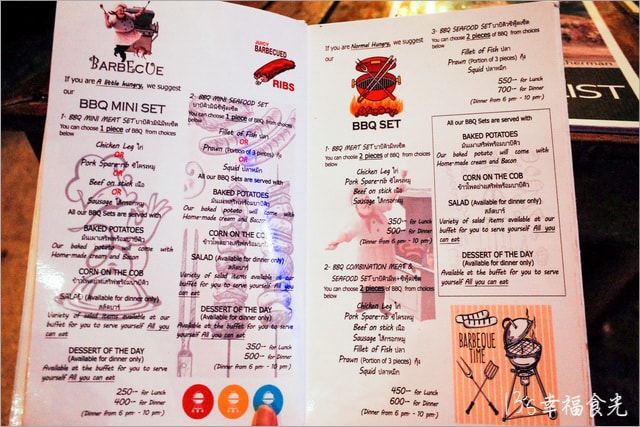 BARBECUE
JUICY
BARBECUED
RIBS
If you are A little hungry, we suggest
our
BBQ MINI SET
1- BBQ MINI MEAT SET บาบีคิวมินิมีทเซ็ต
You can choose 1 piece of BBQ from choices
below
Chicken Leg ไก่
OR
Pork Spare-rib ซี่โครงหมู
OR
Beef on stick เนื้อ
OR
Sausage ไส้กรอกหมู
All our BBQ Sets are served with
BAKED POTATOES
มันเผาเสริฟพร้อมบาบีคิว
Our baked potato will come with
Home-made cream and Bacon
CORN ON THE COB
ข้าวโพดย่างเสริฟพร้อมบาบีคิว
SALAD (Available for dinner only)
สลัดบาร์
Variety of salad items available at our
buffet for you to serve yourself All you
can eat
DESSERT OF THE DAY
(Available for dinner only)
Available at the buffet for you to serve
yourself All you can eat
250.- for Lunch
400.- for Dinner
(Dinner from 6 pm - 10 pm)
2- BBQ MINI SEAFOOD SET
บาบีคิวมินิซีฟู้ดเซ็ต
You can choose 1 piece of BBQ from choices
below
Fillet of Fish ปลา
OR
Prawn (Portion of 3 pieces) กุ้ง
OR
Squid ปลาหมึก
All our BBQ Sets are served with
BAKED POTATOES
มันเผาเสริฟพร้อมบาบีคิว
Our baked potato will come with
Home-made cream and Bacon
CORN ON THE COB
ข้าวโพดย่างเสริฟพร้อมบาบีคิว
SALAD (Available for dinner only)
สลัดบาร์
Variety of salad items available at our
buffet for you to serve yourself All you
can eat
DESSERT OF THE DAY
(Available for dinner only)
Available at the buffet for you to serve
yourself All you can eat
350.- for Lunch
500.- for Dinner
(Dinner from 6 pm - 10 pm)
If you are Normal Hungry, we suggest
our
BBQ SET
1- BBQ MEAT SET บาบีคิวมีทเซ็ต
You can choose 2 pieces of BBQ from choices
below
Chicken Leg ไก่
Pork Spare-rib ซี่โครงหมู
Beef on stick เนื้อ
Sausage ไส้กรอกหมู
350.- for Lunch
500.- for Dinner
(Dinner from 6 pm - 10 pm)
2- BBQ COMBINATION MEAT &
SEAFOOD SET บาบีคิวมีท+ซีฟู้ดเซ็ต
You can choose 2 pieces of BBQ from choices
below
Chicken Leg ไก่
Pork Spare-rib ซี่โครงหมู
Beef on stick เนื้อ
Sausage ไส้กรอกหมู
Fillet of Fish ปลา
Prawn (Portion of 3 pieces) กุ้ง
Squid ปลาหมึก
450.- for Lunch
600.- for Dinner
(Dinner from 6 pm - 10 pm)
3- BBQ SEAFOOD SET บาบีคิวซีฟู้ดเซ็ต
You can choose 2 pieces of BBQ from choices
below
Fillet of Fish ปลา
Prawn (Portion of 3 pieces) กุ้ง
Squid ปลาหมึก
550.- for Lunch
700.- for Dinner
(Dinner from 6 pm - 10 pm)
All our BBQ Sets are served with
BAKED POTATOES
มันเผาเสริฟพร้อมบาบีคิว
Our baked potato will come with
Home-made cream and Bacon
CORN ON THE COB
ข้าวโพดย่างเสริฟพร้อมบาบีคิว
SALAD (Available for dinner only)
สลัดบาร์
Variety of salad items available at our
buffet for you to serve yourself All you
can eat
DESSERT OF THE DAY
(Available for dinner only)
Available at the buffet for you to serve
yourself All you can eat
BARBEQUE
TIME
herman
IST
幸福食光